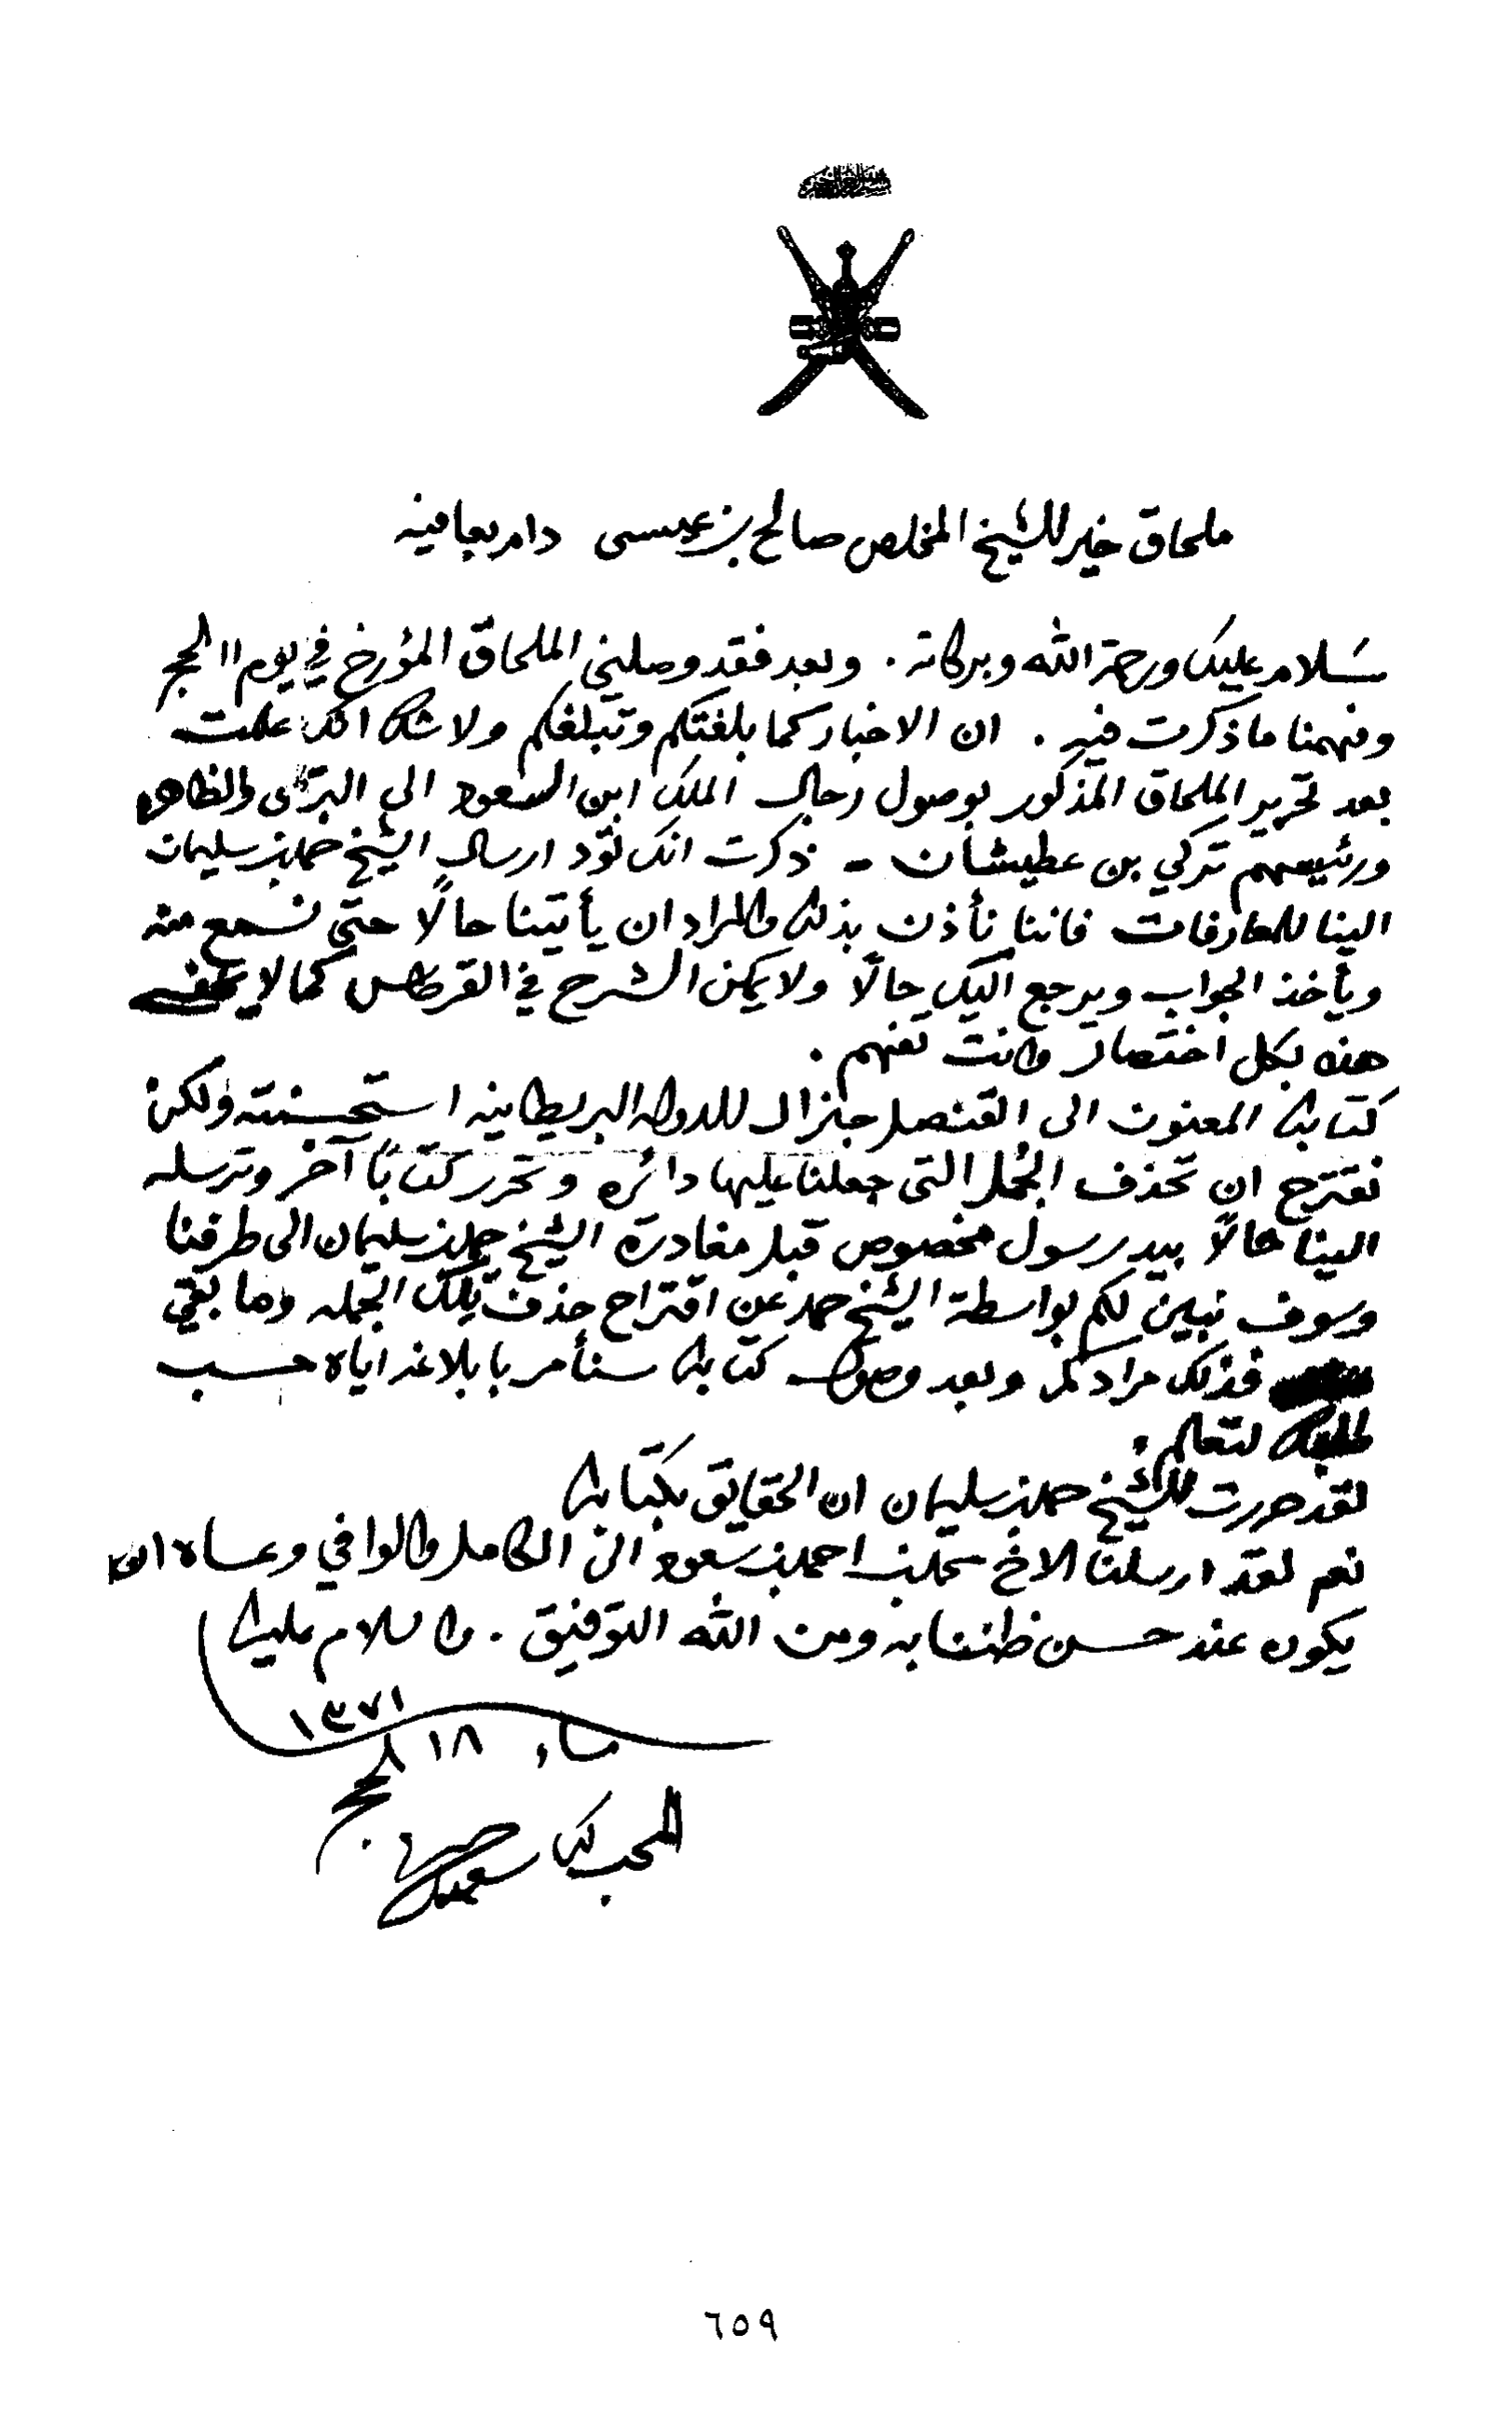 ملحاق خير للشيخ المخلص صالح بن عيسى دام بعافيه
سلام عليك ورحمة الله وبركاته . وبعد فقد وصلني الملحاق المؤرخ في يوم ١١ الحج
وفهمنا ما ذكرت فيه . ان الاخبار كما بلغتكم وتبلغكم ولا شك انك علمت
بعد تحرير الملحاق المذكور بوصول رجال الملك ابن السعود الى البريمى والظاهر
ورئيسهم تركي بن عطيشان - ذكرت انك تود ارسال الشيخ حمد بن سليمان
الينا للمعارفات فاننا نأذن بذلك والمراد ان يأتينا حالًا حتى نسمع منه
ويأخذ الجواب ويرجع اليك حالًا ولا يمكن الشرح في القرطاس كما لا يخفى
هذه بكل اختصار وانت تفهم .
كتابك المعنون الى القنصل جنرال للدوله البريطانيه استحسنته ولكن
نقترح ان تحذف الجمل التى جعلنا عليها دائره وتحرر كتابًا آخر وترسله
الينا حالًا بيد رسول مخصوص قبل مغادرة الشيخ حمد بن سليمان الى طرفنا
وسوف نبين لكم بواسطة الشيخ حمد عن اقتراح حذف تلك الجمله وما بقي
فذلك مرادكم وبعد وصول كتابك سنأمر بابلاغه اياه حسب
طلبك لتعلم .
لقد حررت للشيخ حمد بن سليمان ان الحقايق بكتابك
نعم لقد ارسلنا الاخ احمد بن سعود الى الكامل والوافي وعساه ان
يكون عند حسن ظننا به ومن الله التوفيق . والسلام عليك
١٣٧١
مساء ١٨ الحج
المحب لك
سعيد
٦٥٩